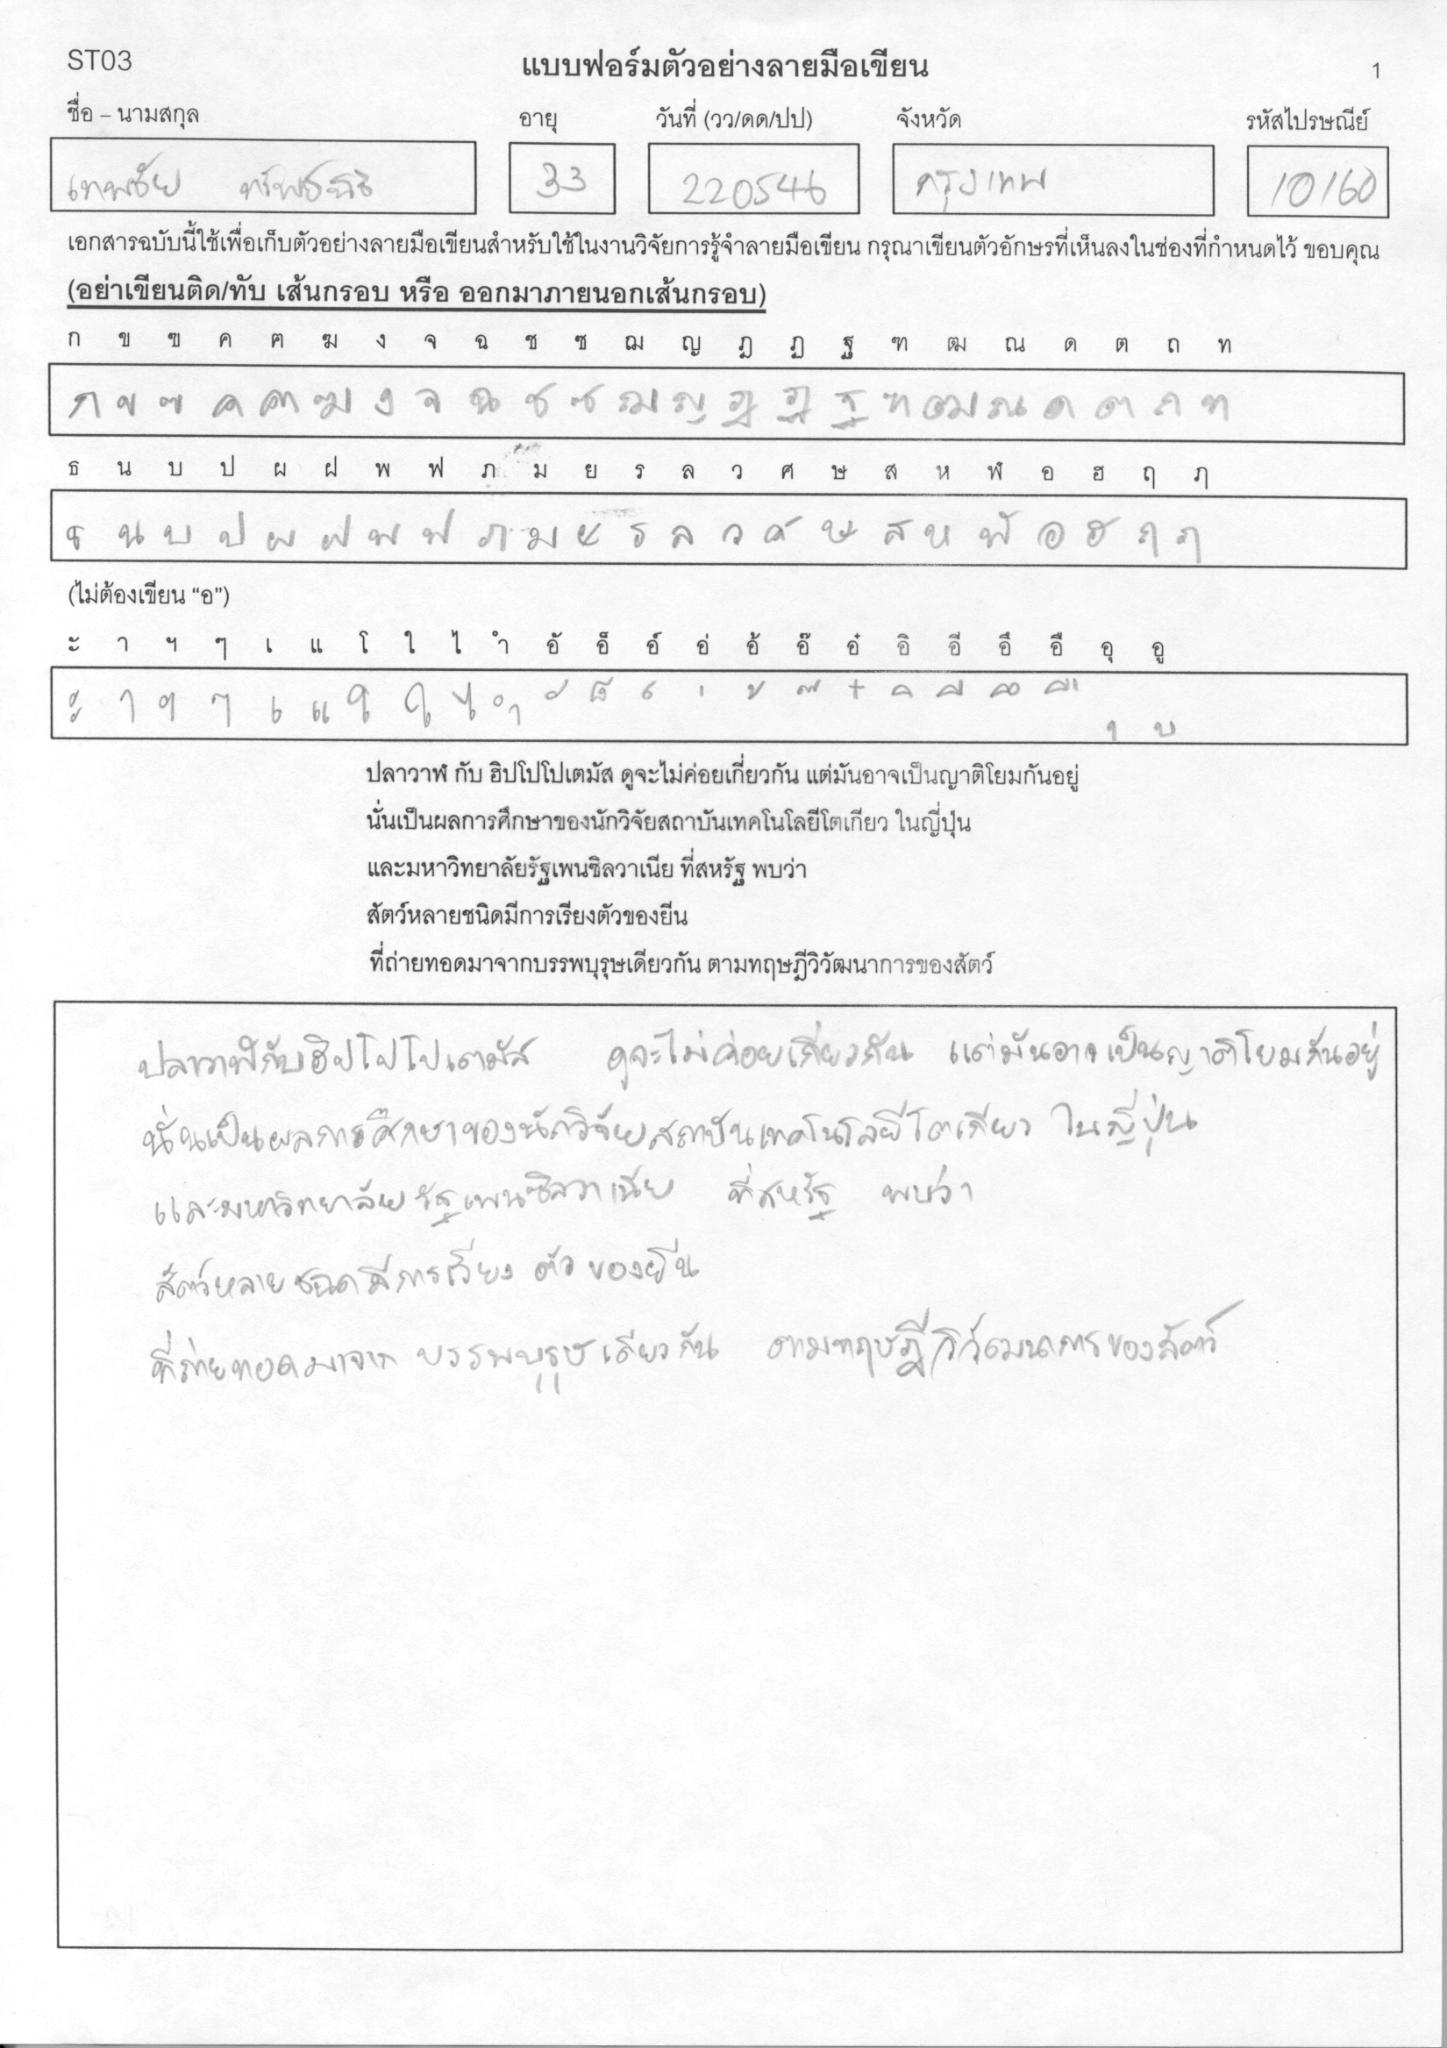 ST03
แบบฟอร์มตัวอย่างลายมือเขียน
1
ชื่อ – นามสกุล อายุ วันที่ (วว/ดด/ปป) จังหวัด รหัสไปรษณีย์
เทพชัย ทรัพย์นิธิ 33 220546 กรุงเทพ 10160
เอกสารฉบับนี้ใช้เพื่อเก็บตัวอย่างลายมือเขียนสำหรับใช้ในงานวิจัยการรู้จำลายมือเขียน กรุณาเขียนตัวอักษรที่เห็นลงในช่องที่กำหนดไว้ ขอบคุณ
(อย่าเขียนติด/ทับ เส้นกรอบ หรือ ออกมาภายนอกเส้นกรอบ)
ก ข ฃ ค ฅ ฆ ง จ ฉ ช ซ ฌ ญ ฎ ฏ ฐ ฑ ฒ ณ ด ต ถ ท
ก ข ฃ ค ฅ ฆ ง จ ฉ ช ซ ฌ ญ ฎ ฏ ฐ ฑ ฒ ณ ด ต ถ ท
ธ น บ ป ผ ฝ พ ฟ ภ ม ย ร ล ว ศ ษ ส ห ฬ อ ฮ ฤ ฦ
ธ น บ ป ผ ฝ พ ฟ ภ ม ย ร ล ว ศ ษ ส ห ฬ อ ฮ ฤ ฦ
(ไม่ต้องเขียน “อ”)
ะ า ฯ ๆ เ แ โ ใ ไ ำ อั อ็ อ์ อ่ อ้ อ๊ อ๋ อิ อี อึ อื อุ อู
ะ า ฯ ๆ เ แ โ ใ ไ ำ ั ็ ์ ่ ้ ๊ ๋ ิ ี ึ ื ุ ู
ปลาวาฬ กับ ฮิปโปโปเตมัส ดูจะไม่ค่อยเกี่ยวกัน แต่มันอาจเป็นญาติโยมกันอยู่
นั่นเป็นผลการศึกษาของนักวิจัยสถาบันเทคโนโลยีโตเกียว ในญี่ปุ่น
และมหาวิทยาลัยรัฐเพนซิลวาเนีย ที่สหรัฐ พบว่า
สัตว์หลายชนิดมีการเรียงตัวของยีน
ที่ถ่ายทอดมาจากบรรพบุรุษเดียวกัน ตามทฤษฎีวิวัฒนาการของสัตว์
ปลาวาฬกับฮิปโปโปเตมัส ดูจะไม่ค่อยเกี่ยวกัน แต่มันอาจเป็นญาติโยมกันอยู่
นั่นเป็นผลการศึกษาของนักวิจัยสถาบันเทคโนโลยีโตเกียว ในญี่ปุ่น
และมหาวิทยาลัยรัฐเพนซิลวาเนีย ที่สหรัฐ พบว่า
สัตว์หลายชนิดมีการเรียงตัวของยีน
ที่ถ่ายทอดมาจากบรรพบุรุษเดียวกัน ตามทฤษฎีวิวัฒนาการของสัตว์